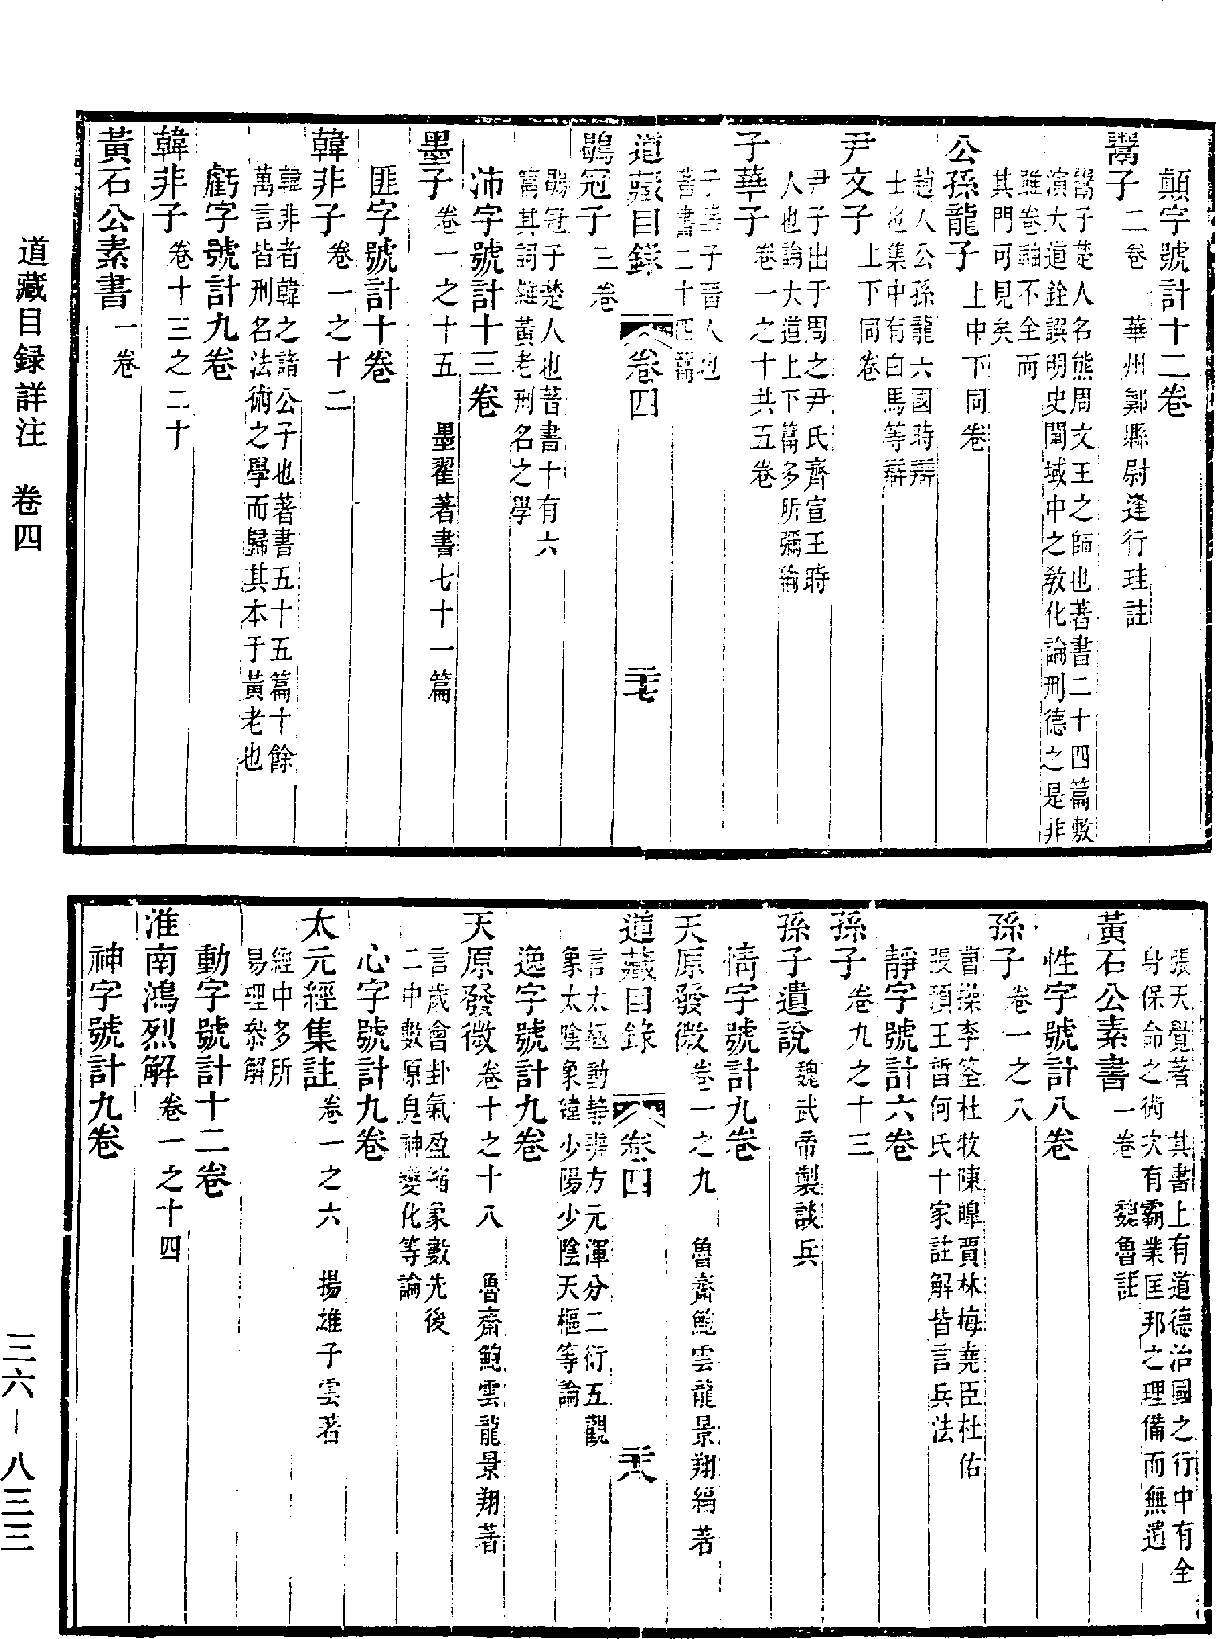 顛字號計十二卷
鬻子二卷　華州鄭縣尉逢行珪註
鬻子楚人名熊周文王之師也著書二十四篇敷
演大道銓譔明史闡域中之教化論刑德之是非
雖卷軸不全而
其門可見矣
公孫龍子上中下同卷
趙人公孫龍六國時辯
士也集中有白馬等辯
尹文子上下同卷
尹子出于周之尹氏齊宣王時
人也論大道上下篇多所彌綸
子華子卷一之十共五卷
子華子晉人也
著書二十四篇
道藏目錄　卷四　二十七
鶡冠子三卷
鶡冠子楚人也著書十有六
篇其詞雜黃老刑名之學
沛字號計十三卷
墨子卷一之十五　墨翟著書七十一篇
匪字號計十卷
韓非子卷一之十二
韓非者韓之諸公子也著書五十五篇十餘
萬言皆刑名法術之學而歸其本于黃老也
虧字號計九卷
韓非子卷十三之二十
黃石公素書一卷
張天覺著　其書上有道德治國之行中有全
身保命之術次有霸業匡邦之理備而無遺
黃石公素書一卷　魏魯註
性字號計八卷
孫子卷一之八
曹操李筌杜牧陳皞賈林梅堯臣杜佑
張預王晳何氏十家註解皆言兵法
靜字號計六卷
孫子卷九之十三
孫子遺說魏武帝製談兵
情字號計九卷
天原發微卷一之九　魯齋鮑雲龍景翔編著
道藏目錄　卷四　二十八
言太極動靜辨方元渾分二衍五觀
象太陰象緯少陽少陰天樞等論
逸字號計九卷
天原發微卷十之十八　魯齋鮑雲龍景翔著
言歲會卦氣盈縮象數先後
二中數原鬼神變化等論
心字號計九卷
太元經集註卷一之六　揚雄子雲著
經中多所
易理叅解
動字號計十二卷
淮南鴻烈解卷一之十四
神字號計九卷
道藏目録詳注　卷四
三六－八三三